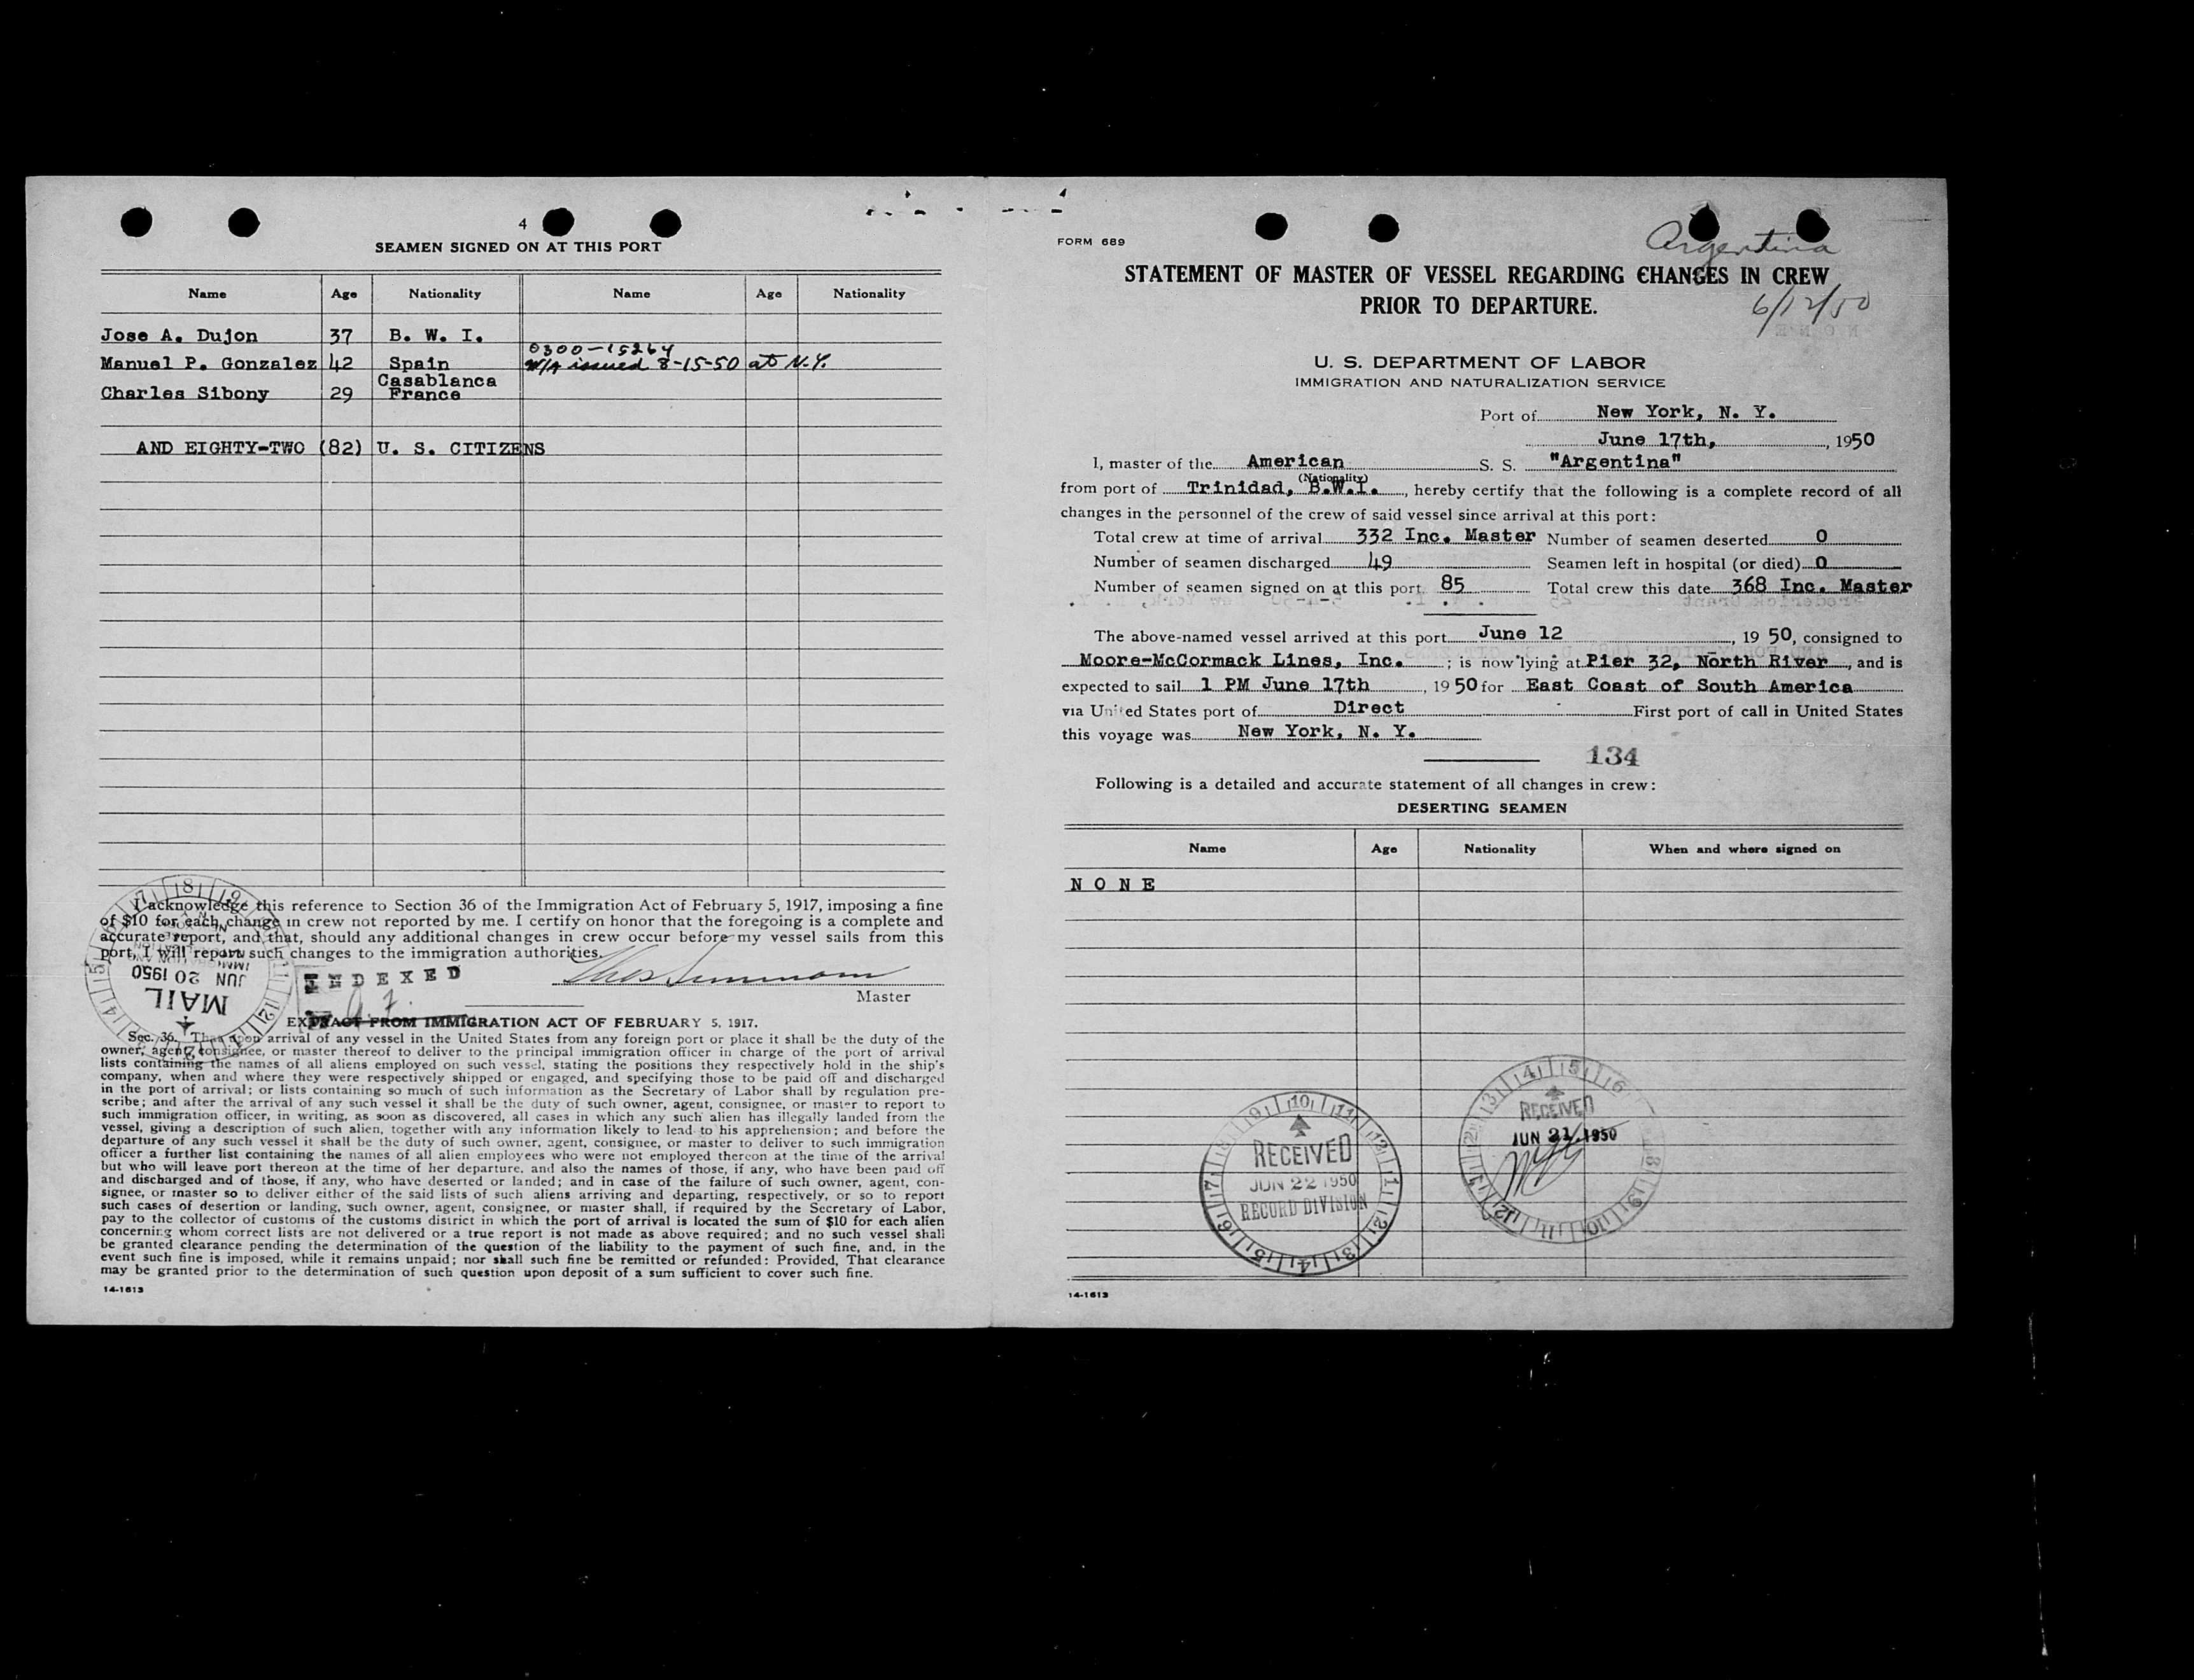 4
SEAMEN SIGNED ON AT THIS PORT
Name Age Nationality Name Age Nationality
Jose A. Dujon 37 B. W. I.
0300-15264
Manuel P. Gonzalez 42 Spain W/A issued 8-15-50 at N.Y.
Casablanca
Charles Sibony 29 France
AND EIGHTY-TWO (82) U. S. CITIZENS
I acknowledge this reference to Section 36 of the Immigration Act of February 5, 1917, imposing a fine
of $10 for each change in crew not reported by me. I certify on honor that the foregoing is a complete and
accurate report, and that, should any additional changes in crew occur before my vessel sails from this
port, I will report such changes to the immigration authorities.
JUN 20 1950
MAIL
INDEXED
Master
EXTRACT FROM IMMIGRATION ACT OF FEBRUARY 5, 1917.
Sec. 36. That upon arrival of any vessel in the United States from any foreign port or place it shall be the duty of the
owner, agent, consignee, or master thereof to deliver to the principal immigration officer in charge of the port of arrival
lists containing the names of all aliens employed on such vessel, stating the positions they respectively hold in the ship's
company, when and where they were respectively shipped or engaged, and specifying those to be paid off and discharged
in the port of arrival; or lists containing so much of such information as the Secretary of Labor shall by regulation pre-
scribe; and after the arrival of any such vessel it shall be the duty of such owner, agent, consignee, or master to report to
such immigration officer, in writing, as soon as discovered, all cases in which any such alien has illegally landed from the
vessel, giving a description of such alien, together with any information likely to lead to his apprehension; and before the
departure of any such vessel it shall be the duty of such owner, agent, consignee, or master to deliver to such immigration
officer a further list containing the names of all alien employees who were not employed thereon at the time of the arrival
but who will leave port thereon at the time of her departure, and also the names of those, if any, who have been paid off
and discharged and of those, if any, who have deserted or landed; and in case of the failure of such owner, agent, con-
signee, or master so to deliver either of the said lists of such aliens arriving and departing, respectively, or so to report
such cases of desertion or landing, such owner, agent, consignee, or master shall, if required by the Secretary of Labor,
pay to the collector of customs of the customs district in which the port of arrival is located the sum of $10 for each alien
concerning whom correct lists are not delivered or a true report is not made as above required; and no such vessel shall
be granted clearance pending the determination of the question of the liability to the payment of such fine, and, in the
event such fine is imposed, while it remains unpaid; nor shall such fine be remitted or refunded: Provided, That clearance
may be granted prior to the determination of such question upon deposit of a sum sufficient to cover such fine.
14-1613
FORM 689
Argentina
STATEMENT OF MASTER OF VESSEL REGARDING CHANGES IN CREW
PRIOR TO DEPARTURE.
6/12/50
U. S. DEPARTMENT OF LABOR
IMMIGRATION AND NATURALIZATION SERVICE
Port of New York, N. Y.
June 17th, , 1950
I, master of the American S. S. "Argentina"
(Nationality)
from port of Trinidad, B.W.I. , hereby certify that the following is a complete record of all
changes in the personnel of the crew of said vessel since arrival at this port:
Total crew at time of arrival 332 Inc. Master Number of seamen deserted 0
Number of seamen discharged 49 Seamen left in hospital (or died) 0
Number of seamen signed on at this port 85 Total crew this date 368 Inc. Master
The above-named vessel arrived at this port June 12 , 19 50, consigned to
Moore-McCormack Lines, Inc. ; is now lying at Pier 32, North River , and is
expected to sail 1 PM June 17th , 19 50 for East Coast of South America
via United States port of Direct First port of call in United States
this voyage was New York, N. Y.
134
Following is a detailed and accurate statement of all changes in crew:
DESERTING SEAMEN
Name Age Nationality When and where signed on
N O N E
RECEIVED
JUN 21 1950
RECEIVED
JUN 22 1950
RECORD DIVISION
14-1613